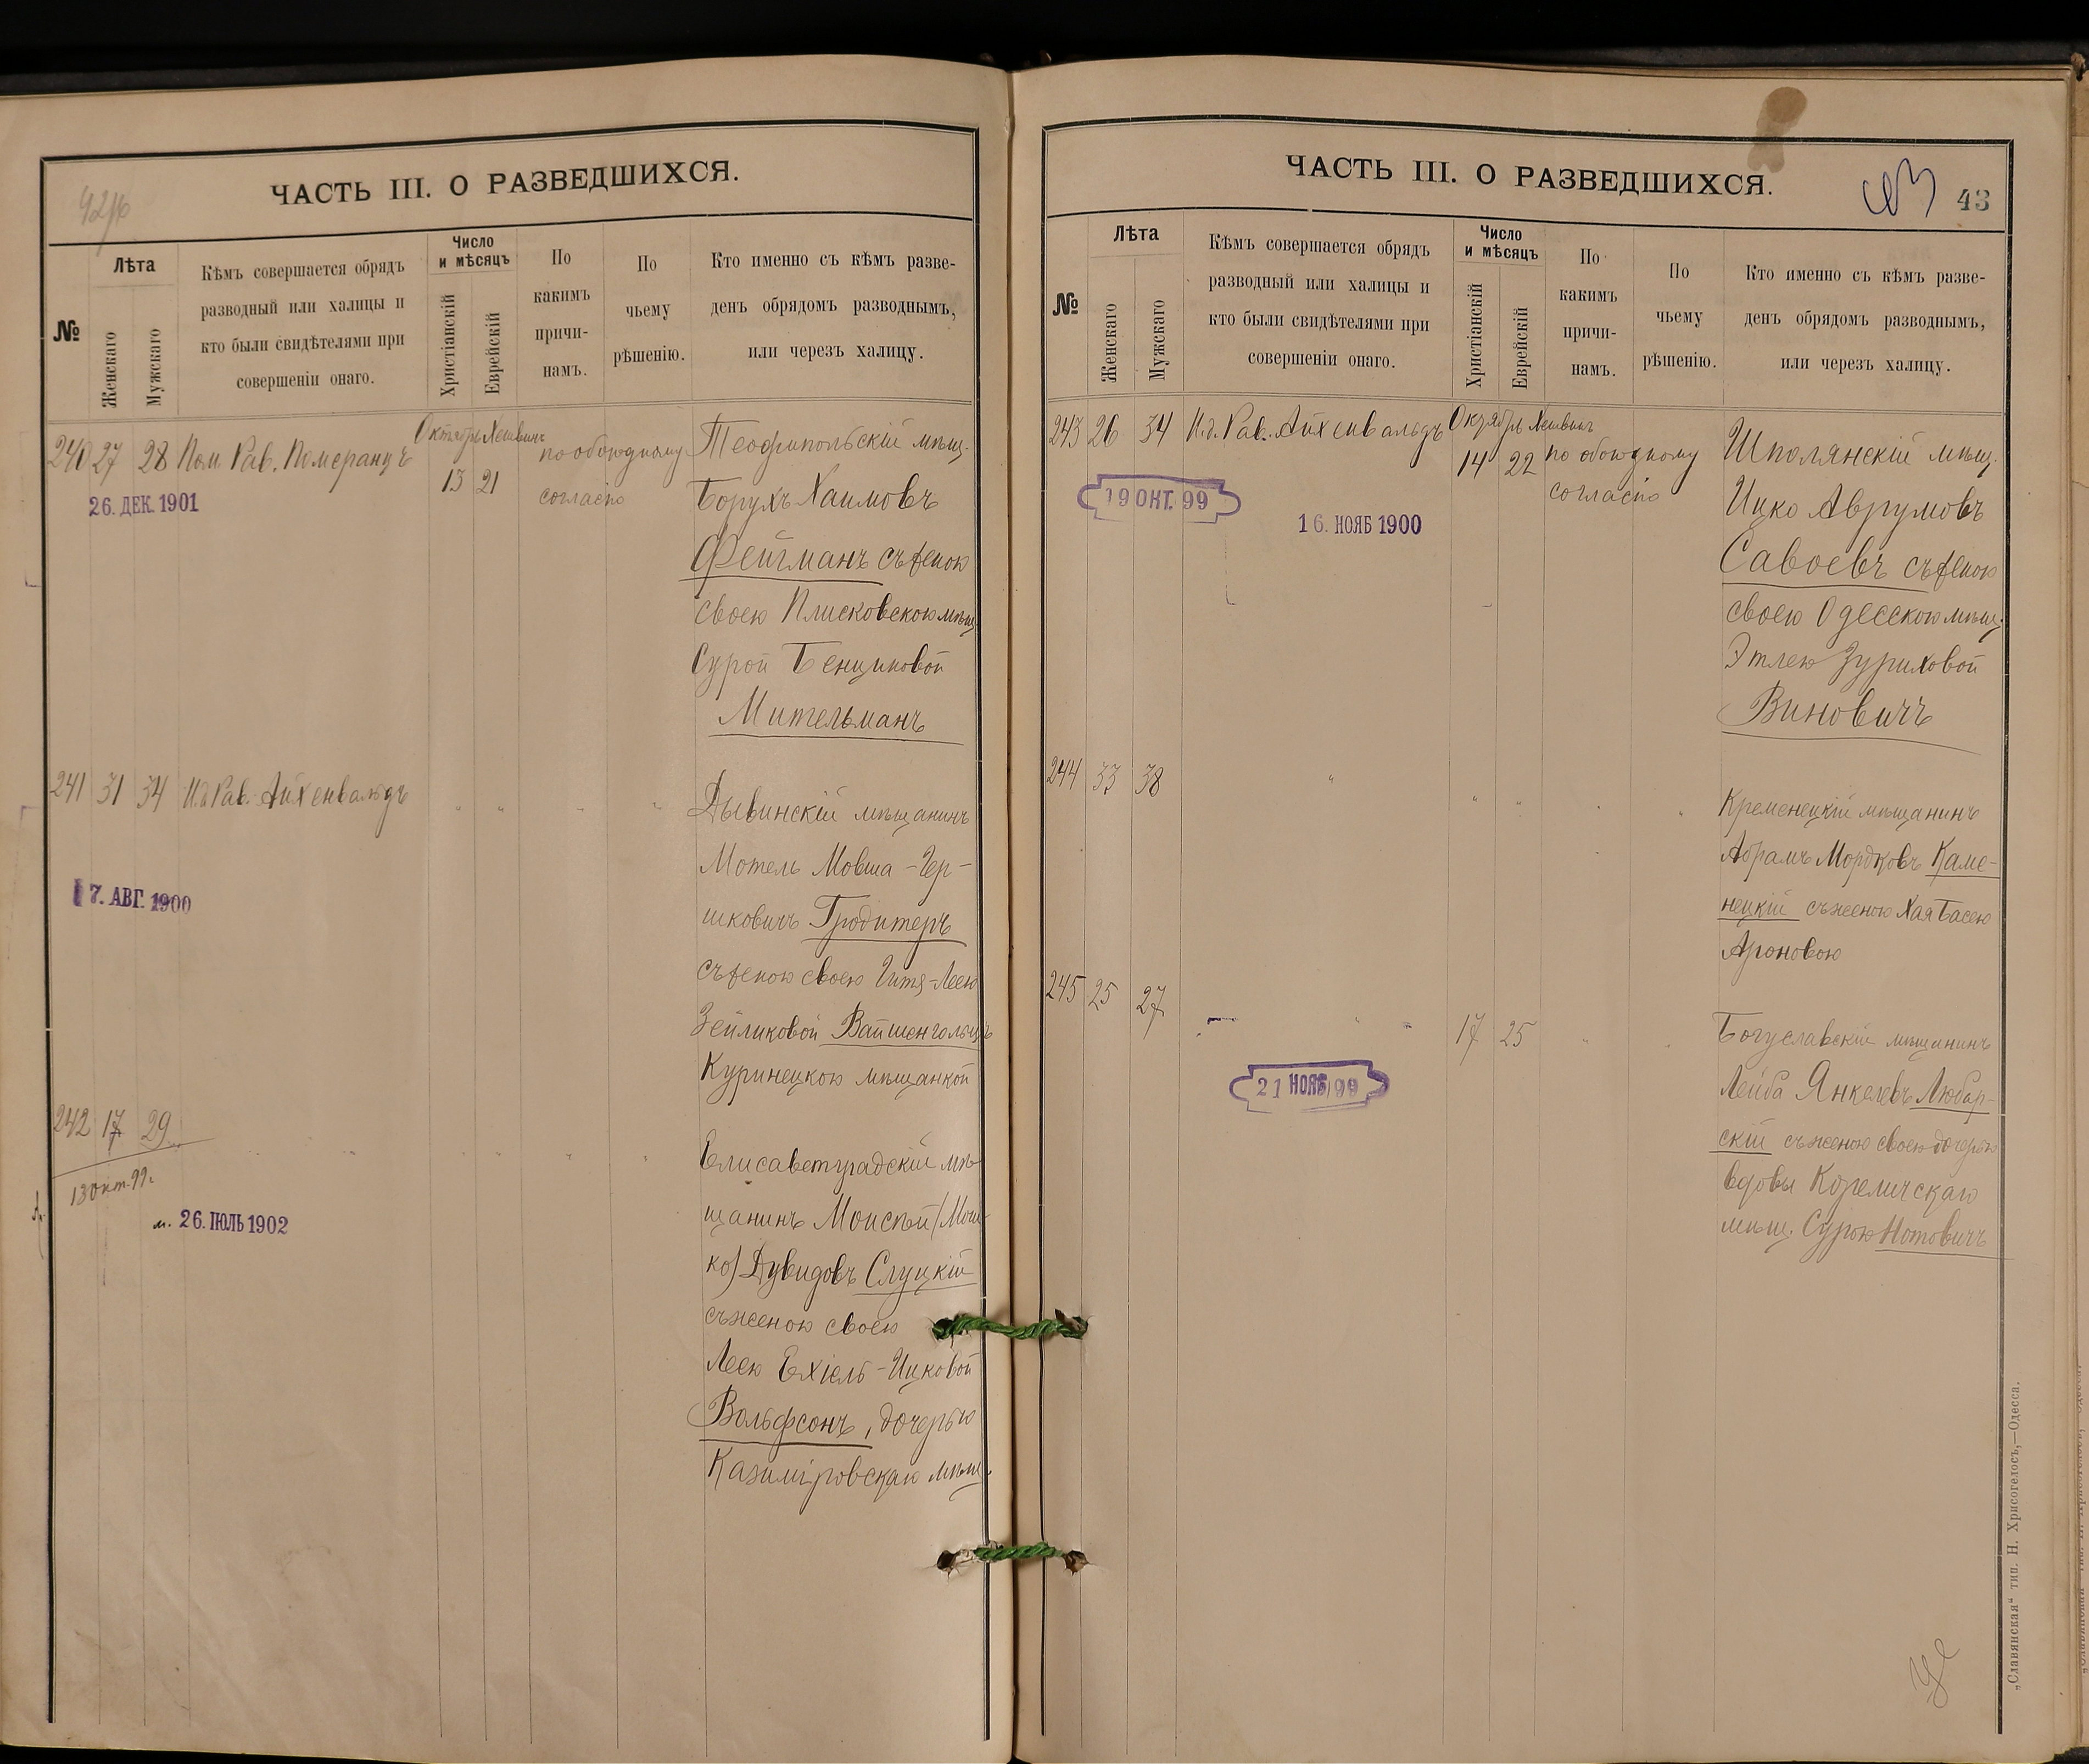 42об
ЧАСТЬ III. О РАЗВЕДШИХСЯ.
№
Лѣта
Женскаго
Мужскаго
Кѣмъ совершается обрядъ
разводный или халицы и
кто были свидѣтелями при
совершеніи онаго.
Число
и мѣсяцъ
Христіанскій
Еврейскій
По
какимъ
причи-
намъ.
По
чьему
рѣшенію.
Кто именно съ кѣмъ разве-
денъ обрядомъ разводнымъ,
или черезъ халицу.
240 27 28 Пом. Рав. Померанцъ
Октябрь Хешвинъ
13 21
по обоюдному
согласію
26. ДЕК. 1901
Теофипольскій мѣщ.
Борухъ Хаимовъ
Фейгманъ съ женою
своею Плисковскою мѣщ.
Сурой Бенціновой
Мительманъ
241 31 34 И.д. Рав. Айхенвальдъ " " " "
17. АВГ. 1900
Дывинскій мѣщанинъ
Мотель Мовша-Гер-
шковичъ Гродитеръ
съ женою своею Гитя-Леею
Зейликовой Вайшенгольцъ
Куринецкою мѣщанкой
242 17 29 " " " " "
13 Окт. 99 г.
м. 26. ІЮЛЬ 1902
Елисаветградскій мѣ-
щанинъ Моисѣй/Мош-
ко) Дувидовъ Слуцкій
съ женою своею
Леею Ехіель-Ицковой
Вольфсонъ, дочерью
Казиміровскаго мѣщ.
ЧАСТЬ III. О РАЗВЕДШИХСЯ.
43
№
Лѣта
Женскаго
Мужскаго
Кѣмъ совершается обрядъ
разводный или халицы и
кто были свидѣтелями при
совершеніи онаго.
Число
и мѣсяцъ
Христіанскій
Еврейскій
По
какимъ
причи-
намъ.
По
чьему
рѣшенію.
Кто именно съ кѣмъ разве-
денъ обрядомъ разводнымъ,
или черезъ халицу.
243 26 34 И.д. Рав. Айхенвальдъ
Октябрь Хешвинъ
14 22
по обоюдному
согласію
19 ОКТ. 99
16. НОЯБ 1900
Шполянскій мѣщ.
Ицко Аврумовъ
Савоевъ съ женою
своею Одесскою мѣщ.
Этлею Зуриховой
Виновичъ
244 33 38 " " " " "
Кременецкій мѣщанинъ
Абрамъ Мордковъ Каме-
нецкій съ женою Хая Басею
Ароновою
245 25 27 " " 17 25 " "
21 НОЯБ 99
Богуславскій мѣщанинъ
Лейба Янкелевъ Любар-
скій съ женою своею дочерью
вдовы Кореличскаго
мѣщ. Сурою Нотовичъ
„Славянская“ тип. Н. Хрисогелосъ,—Одесса.